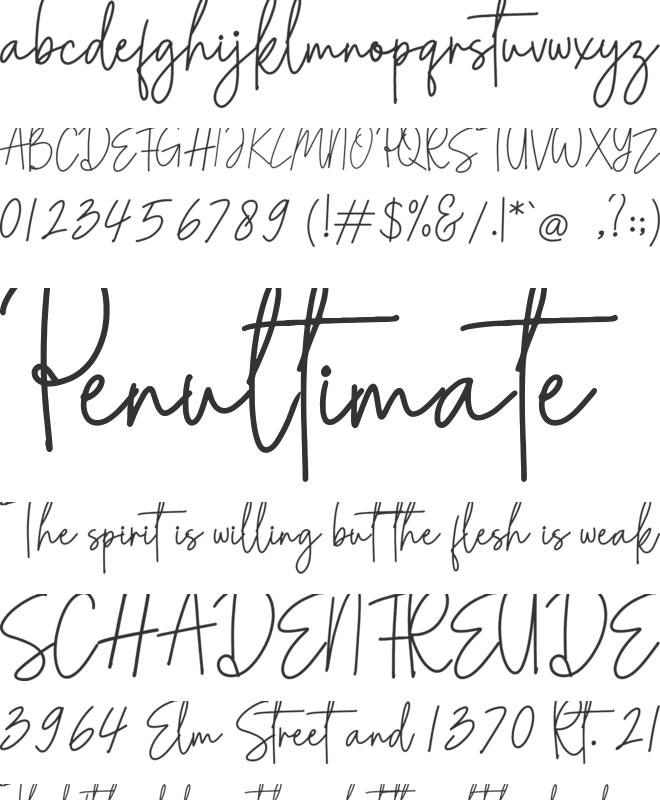 abcdefghijklmnopqrstuvwxyz
ABCDEFGHIJKLMNOPQRSTUVWXYZ
0123456789 (!#$%&/.|*`@ ,?:;)
Penultimate
The spirit is willing but the flesh is weak
SCHADENFREUDE
3964 Elm Street and 1370 Rt. 21